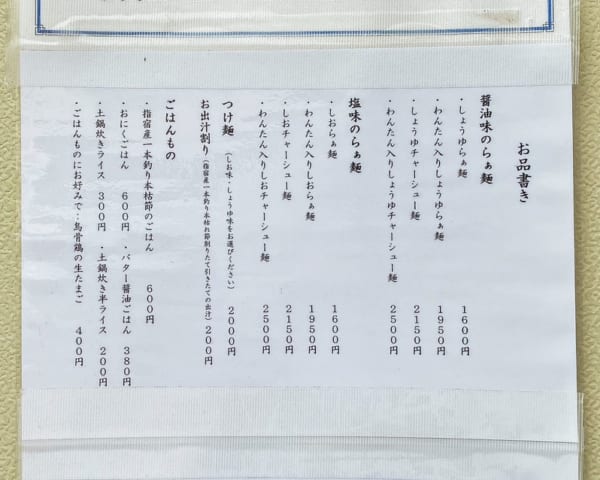 お品書き
醤油味のらぁ麺
・しょうゆらぁ麺 1600円
・わんたん入りしょうゆらぁ麺 1950円
・しょうゆチャーシュー麺 2150円
・わんたん入りしょうゆチャーシュー麺 2500円
塩味のらぁ麺
・しおらぁ麺 1600円
・わんたん入りしおらぁ麺 1950円
・しおチャーシュー麺 2150円
・わんたん入りしおチャーシュー麺 2500円
つけ麺 (しお味・しょうゆ味をお選びください) 2000円
お出汁割り(指宿産一本釣り本枯れ節削りたて引きたての出汁) 200円
ごはんもの
・指宿産一本釣り本枯節のごはん 600円
・おにくごはん 600円 ・バター醤油ごはん 380円
・土鍋炊きライス 300円 ・土鍋炊き半ライス 200円
・ごはんものにお好みで:烏骨鶏の生たまご 400円